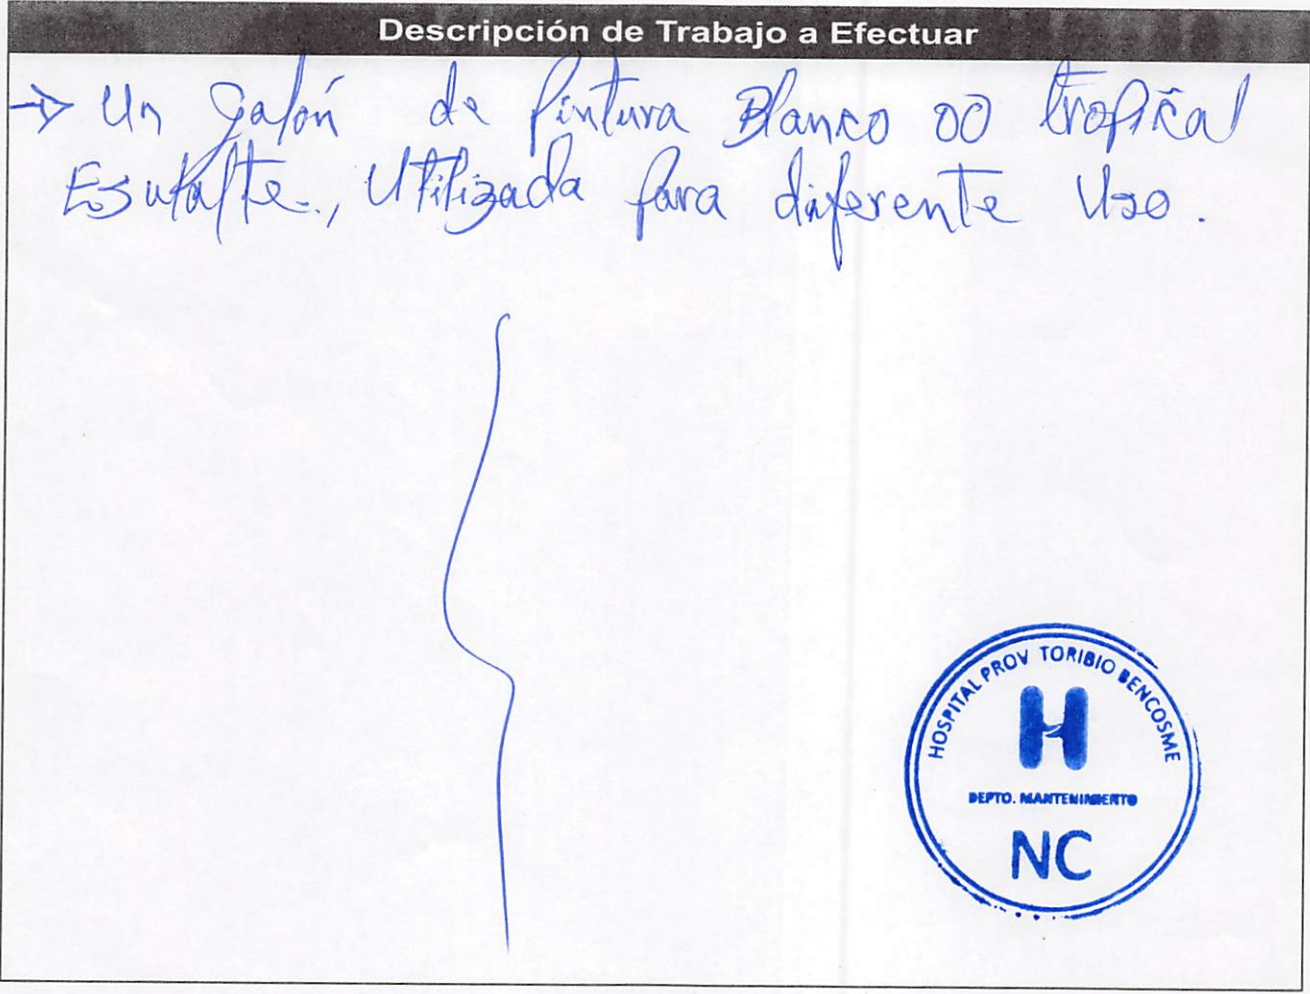 Descripción de Trabajo a Efectuar
→ Un galón de pintura Blanco 00 tropical
Utilizada para diferente Uso.
HOSPITAL PROV TORIBIO BENCOSME
H
DEPTO. MANTENIMIENTO
NC